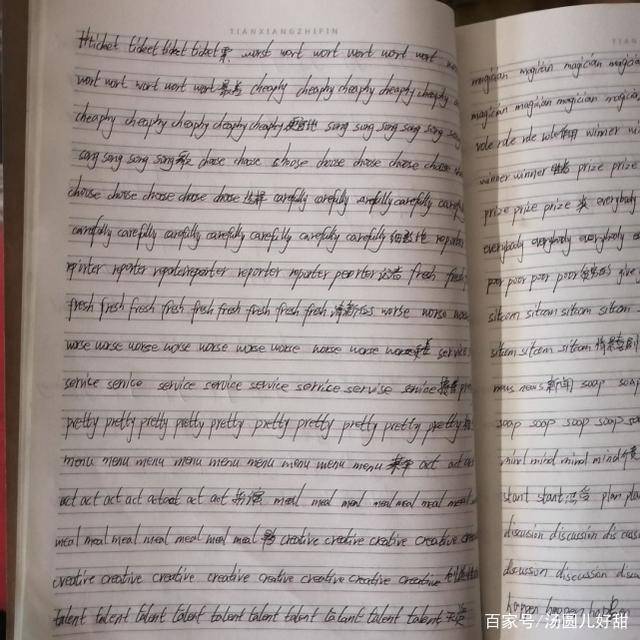 TIANXIANGZHIPIN
ticket ticket ticket ticket 票. worst wort wort wort wort wort
wort wort wort wort wort 最差 cheaply cheaply cheaply cheaply cheaply
cheaply cheaply cheaply cheaply cheaply 便宜地 song song song song song song
song song song song 歌 choose choose choose choose choose choose choose
choose choose choose choose choose 选择 carefully carefully carefully carefully carefully
carefully carefully carefully carefully carefully carefully 细致地 reporter
reporter reporter reporter reporter reporter reporter 记者 fresh fresh
fresh fresh fresh fresh fresh fresh fresh fresh 清新的 worse worse worse
worse worse worse worse worse worse worse worse worse worse service
service service service service service service service service pretty
pretty pretty pretty pretty pretty pretty pretty pretty pretty pretty
menu menu menu menu menu menu menu menu menu 菜单 act act
act act act act act act act 扮演 meal meal meal meal meal meal
meal meal meal meal meal meal meal creative creative creative creative
creative creative creative creative creative creative creative creative
talent talent talent talent talent talent talent talent talent talent
TIAN
magician magician magician magician
magician magician magician magician
role role role role 作用 winner
winner winner prize prize
prize prize prize 奖 everybody
everybody everybody everybody
poor poor poor poor give
sitcom sitcom sitcom sitcom
sitcom sitcom sitcom 情景喜剧
news news 新闻 soap soap
soap soap soap soap
mind mind mind mind
start start plan plan
discussion discussion discussion
discussion discussion
happen happen happen
百家号/汤圆儿好甜